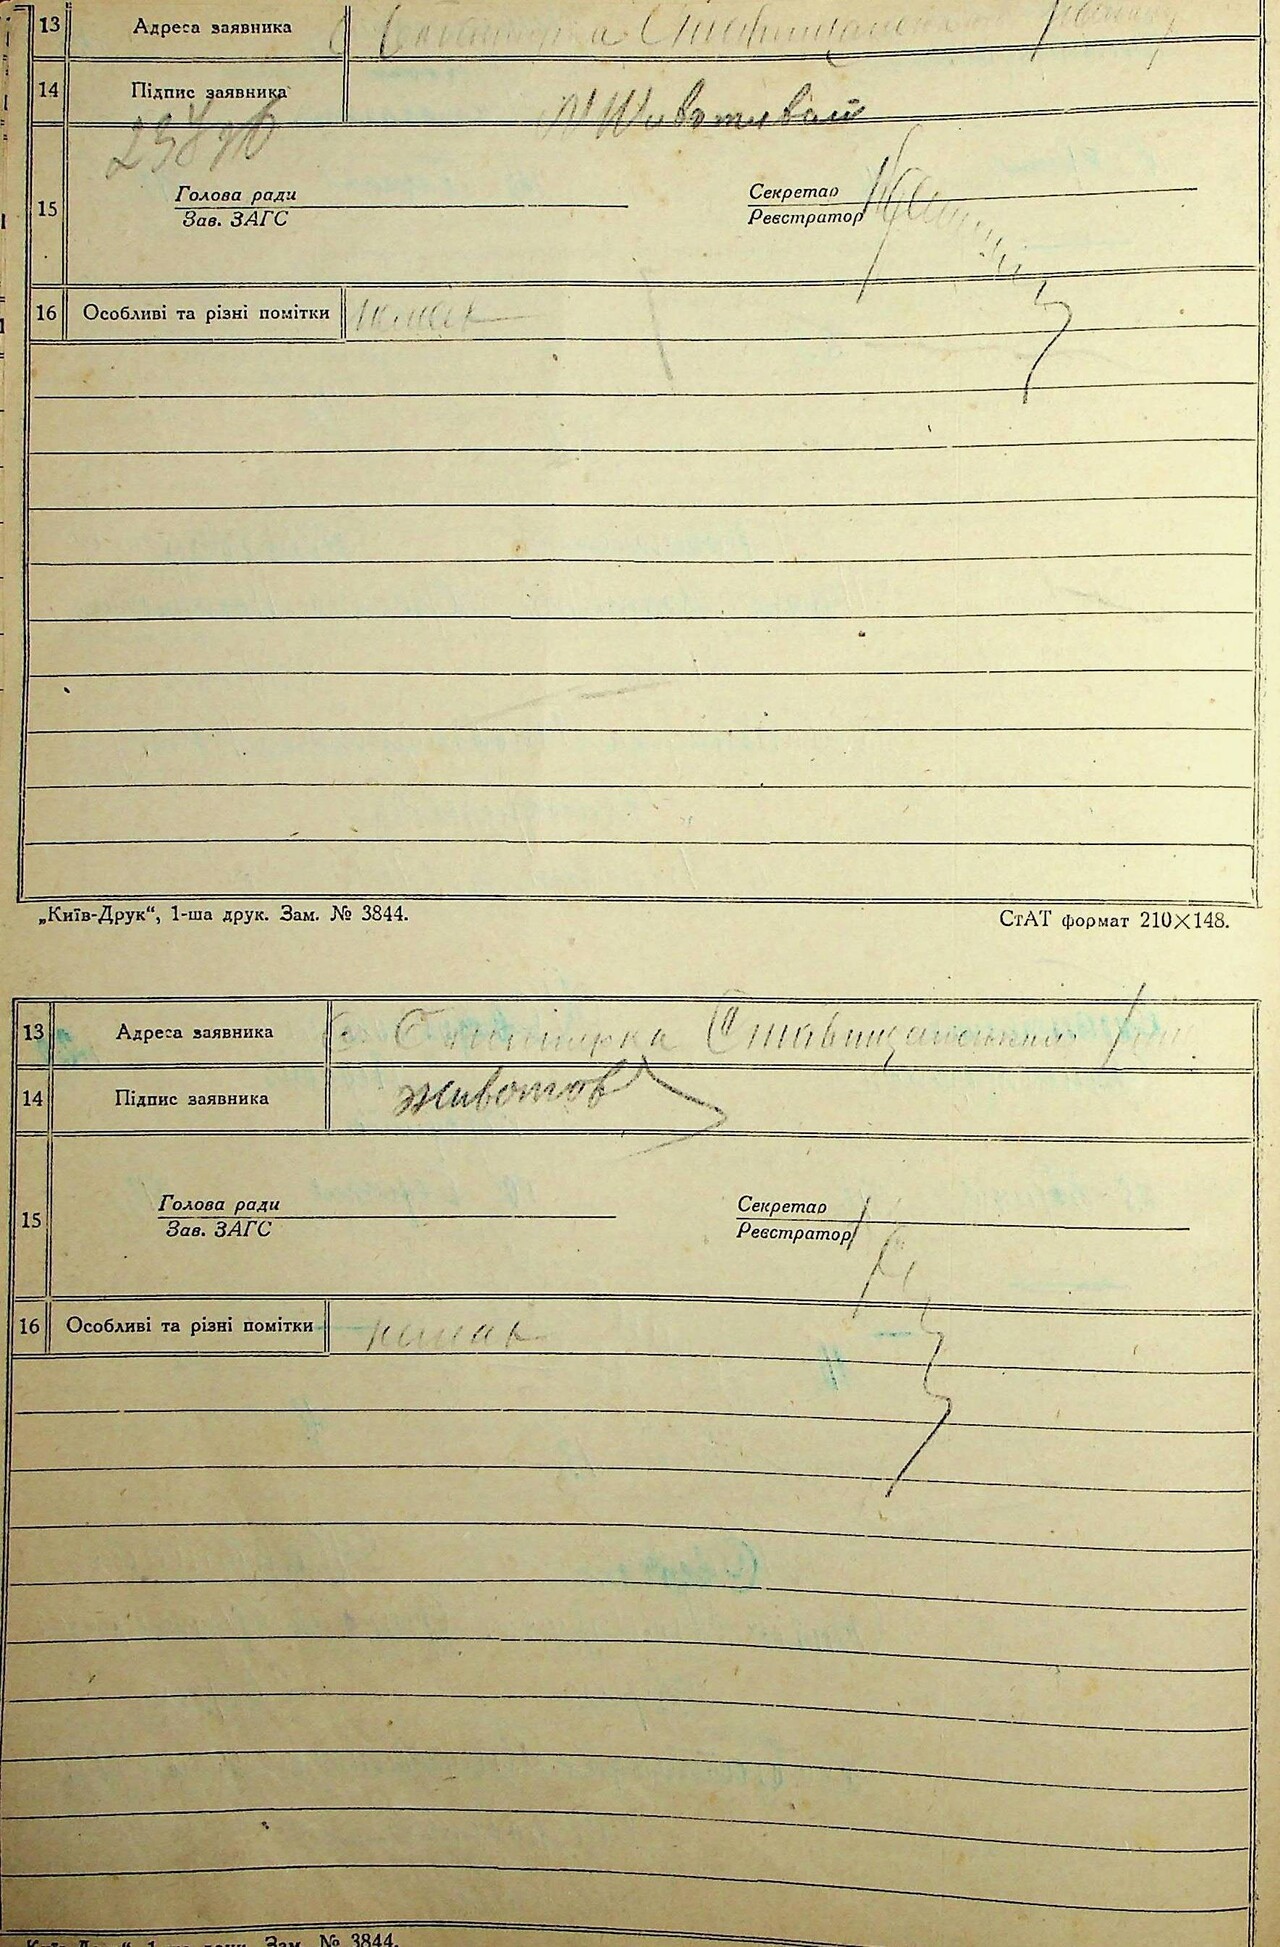 13 Адреса заявника
14 Підпис заявника
15 Голова ради Секретар
Зав. ЗАГС Реєстратор
16 Особливі та різні помітки немає
„Київ-Друк“, 1-ша друк. Зам. № 3844. СтАТ формат 210×148.
13 Адреса заявника с Снитирка Ставищанськ
14 Підпис заявника Животов
15 Голова ради Секретар
Зав. ЗАГС Реєстратор
16 Особливі та різні помітки немає
Зам. № 3844.